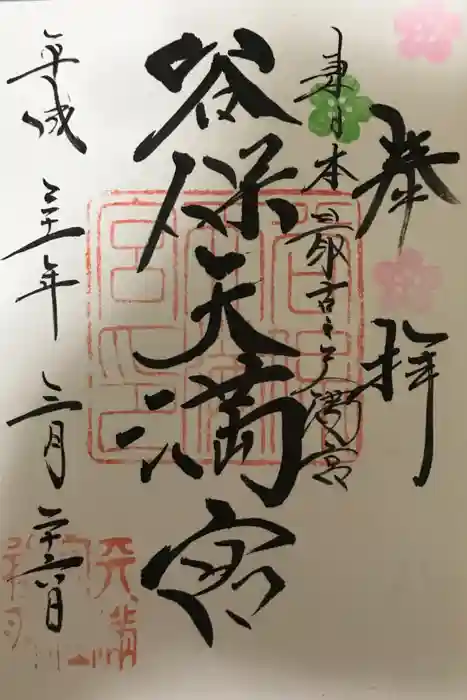 奉拝
東日本最古之天満宮
谷保天満宮
平成三十年三月二十六日